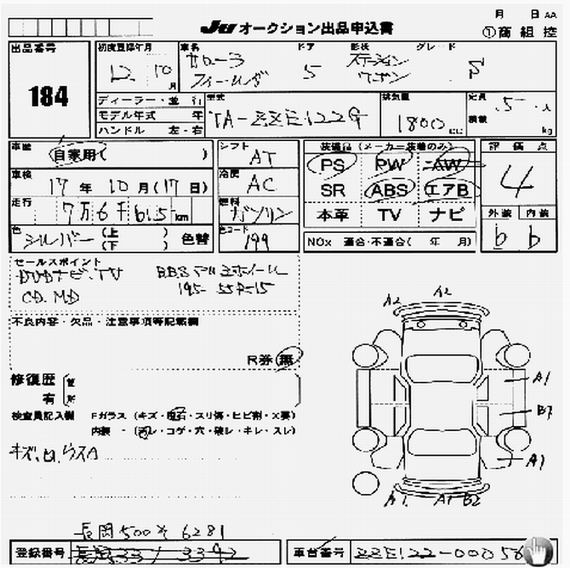 月 日 AA
JU オークション出品申込書 ①商 組 控
出品番号 初度登録年月 車名 ドア 形状 グレード
184
12年 10月 カローラ フィールダー 5 ステーションワゴン S
ディーラー・並行
モデル年式 年
ハンドル 左・右
型式 TA-ZZE122G
排気量 1800cc
定員 5人
積載 kg
車歴 自家用( )
シフト AT
装備品(メーカー装着のみ)
PS PW AW
SR ABS エアB
本革 TV ナビ
評価点 4
車検 17年10月(17日)
冷房 AC
走行 7万6千615km
燃料 ガソリン
外装 内装
b b
色 シルバー (上) (下) 色替
色コード 199
NOx 適合・不適合( 年 月)
セールスポイント
DVDナビ.TV BBSアルミホイール
CD.MD 195-55R-15
不良内容・欠品・注意事項等記載欄
R券 無
修復歴
有
検査員記入欄 Fガラス(キズ・飛石・スリ傷・ヒビ割・X要)
内装 - (汚レ・コゲ・穴・破レ・キレ・スレ)
A2 A2
A1
B7
A1
A1 A1 B2
長岡500 そ 6281
登録番号 長岡33 3392
車台番号 ZZE122-00058